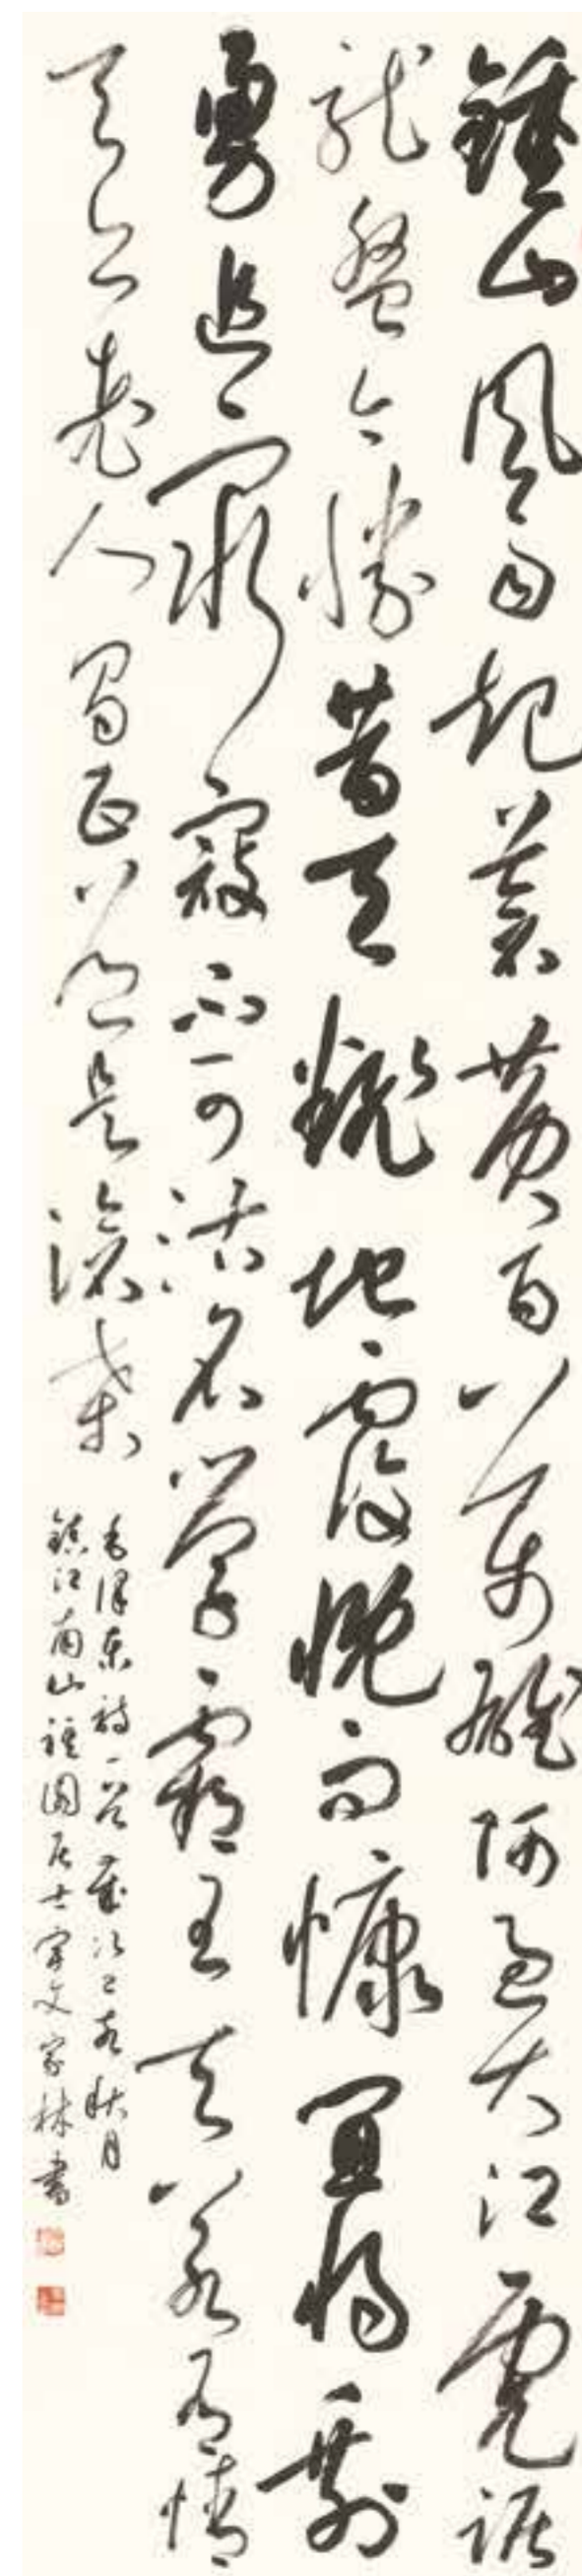 鍾山風雨起蒼黃百万雄师過大江虎踞
龍盤今勝昔天翻地覆慨而慷宜将剩
勇追窮寇不可沽名學霸王天若有情
天亦老人間正道是滄桑
毛澤東詩一首歲次己亥秋月
鎮江南山種園居士宇文家林書